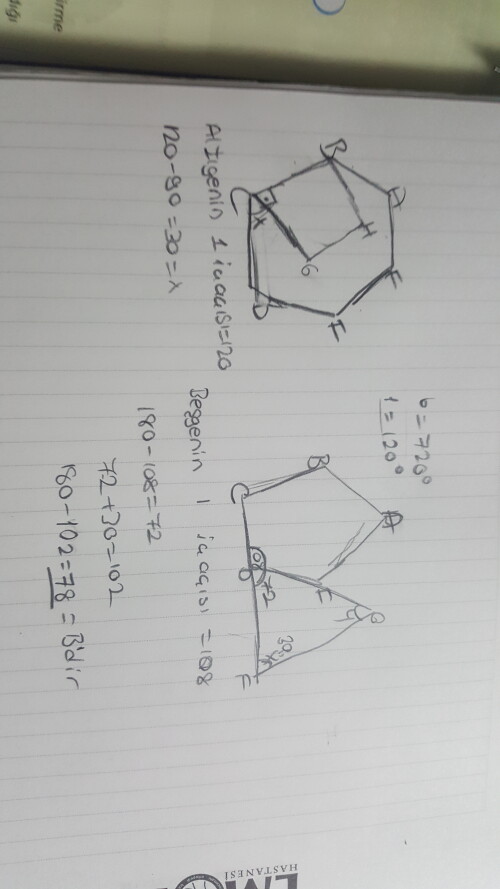 6 = 720°
1 = 120°
A
B
H
E
G
F
C
x
D
Altıgenin 1 iç açısı = 120
120 - 90 = 30 = x
A
B
E
G
y
C
D
108
72
30 = x
F
Beşgenin 1 iç açısı = 108
180 - 108 = 72
72 + 30 = 102
180 - 102 = 78 = B'dir
HASTANESİ